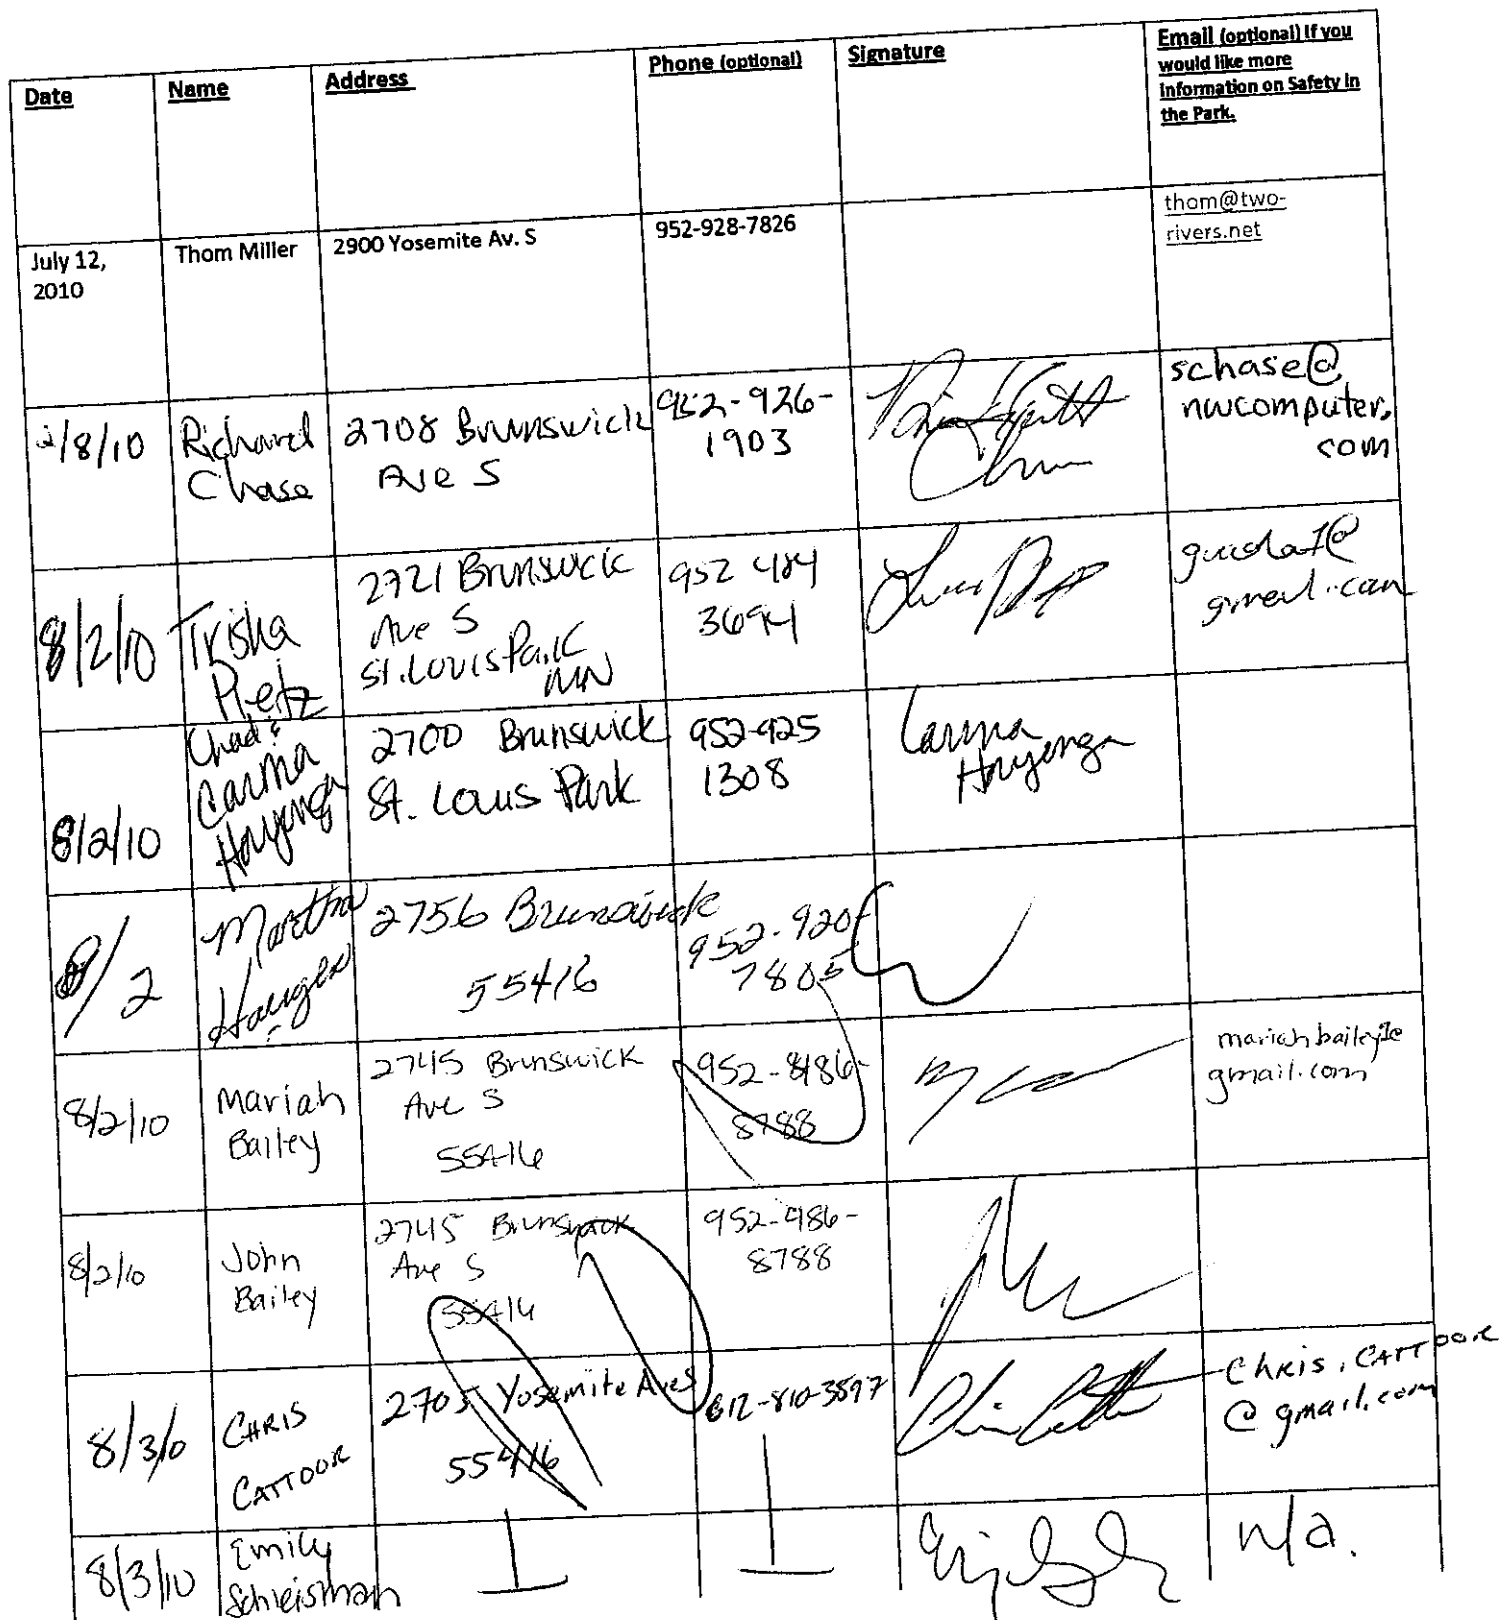 Date
Name
Address
Phone (optional)
Signature
Email (optional) If you
would like more
Information on Safety in
the Park.
July 12,
2010
Thom Miller
2900 Yosemite Av. S
952-928-7826
thom@two-
rivers.net
/8/10
Richard
Chase
2708 Brunswick
Ave S
952-926-
1903
schase@
nwcomputer.
com
8/2/10
Trisha
Pretz
2721 Brunswick
Ave S
St. Louis Park
MN
952 484
3694
gmail.com
8/2/10
Chad &
Carma
Hoyenga
2700 Brunswick
St. Louis Park
952-925
1308
Carma
Hoyenga
8/2
Martha
2756 Brunswick
55416
952-920-
7805
8/2/10
Mariah
Bailey
2745 Brunswick
Ave S
55416
952-486-
8788
mariahbailey1@
gmail.com
8/2/10
John
Bailey
2745 Brunswick
Ave S
55416
952-486-
8788
8/3/10
CHRIS
CATTOOR
2705 Yosemite Ave S
55416
612-810-3597
Chris.CATTOOR
@gmail.com
8/3/10
Emily
Schleisman
n/a.